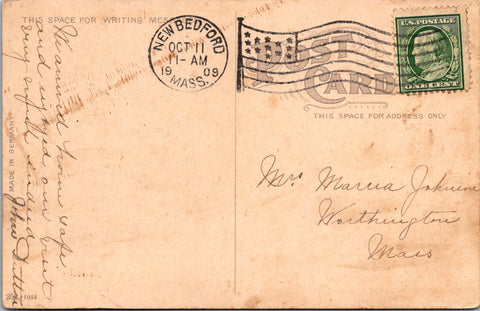 THIS SPACE FOR WRITING MES
We arrived home safe.
and enjoyed our visit
very much indeed
John
MADE IN GERMANY
1064
NEW BEDFORD
OCT 11
11-AM
1909
MASS.
POST
CARD
U.S. POSTAGE
ONE CENT
THIS SPACE FOR ADDRESS ONLY
Mrs Marcia Johnson
Worthington
Mass